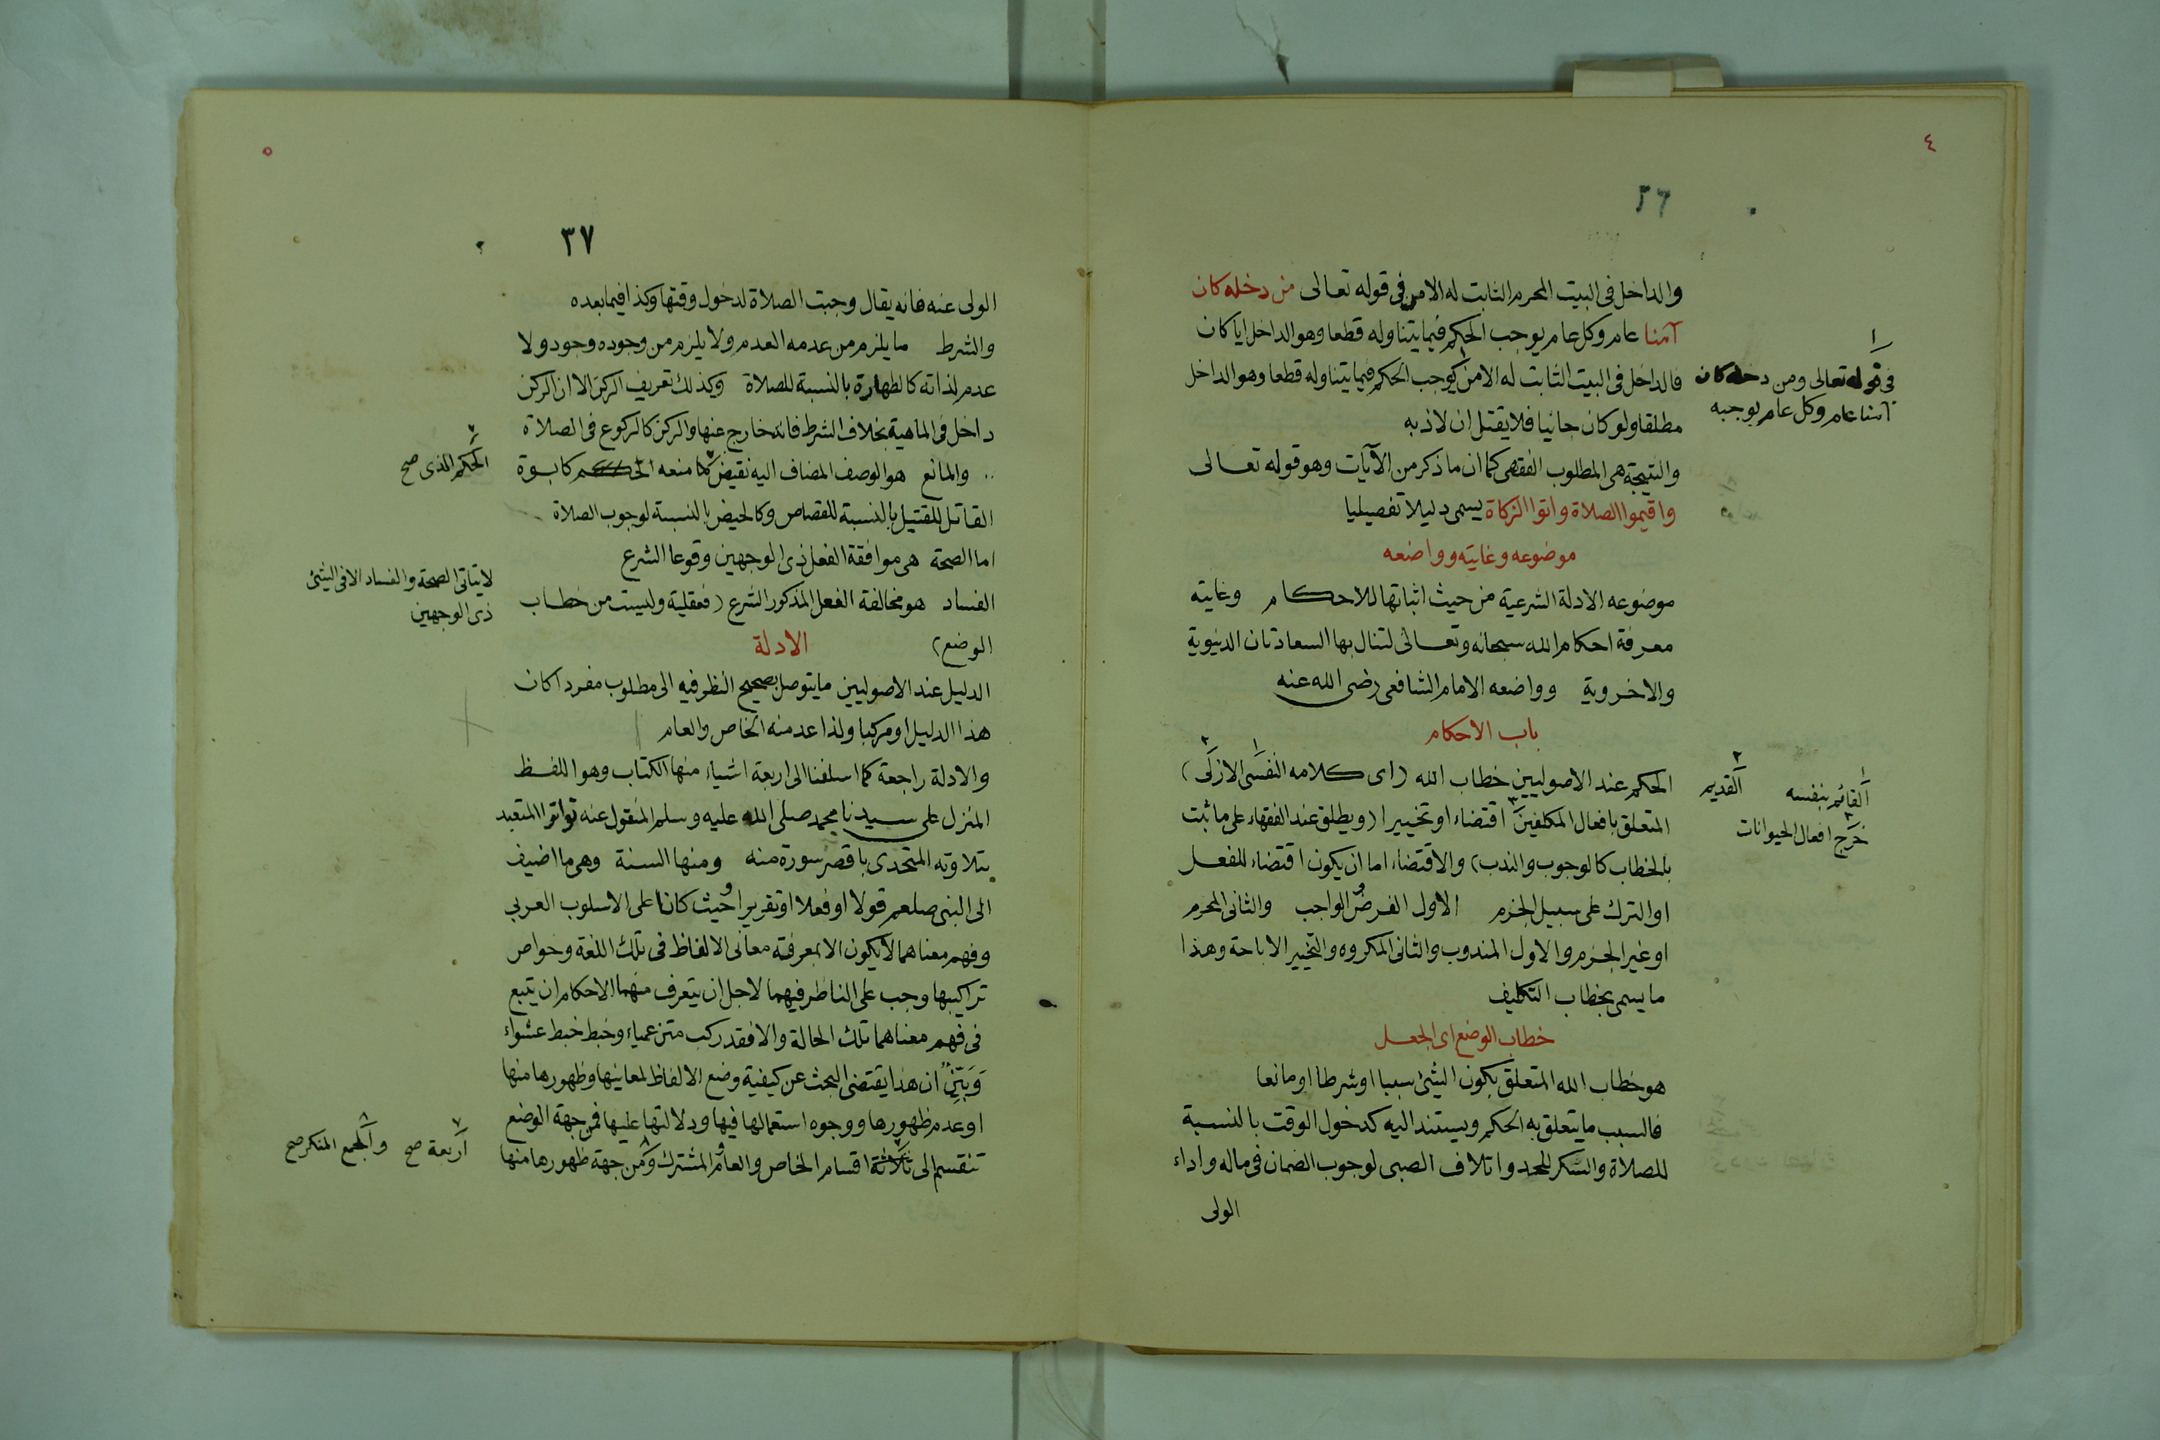 ٤
٣٦
والداخل فى البيت المحرم الثابت له الامن فى قوله تعالى من دخله كان
آمنا عام وكل عام يوجب الحكم فيما يتناوله قطعا وهو الداخل ايا كان
فالداخل فى البيت الثابت له الامن يوجب الحكم فيما يتناوله قطعا وهو الداخل
مطلقا ولو كان جانيا فلا يقتل ان لاذ به
والنتيجة هى المطلوب الفقهى كما ان ما ذكر من الآيات وهو قوله تعالى
واقيموا الصلاة واتوا الزكاة يسمى دليلا تفصيليا
موضوعه وغايته وواضعه
موضوعه الادلة الشرعية من حيث اثباتها للاحكام وغايته
معرفة احكام الله سبحانه وتعالى لتنال بها السعادتان الدنيوية
والاخروية وواضعه الامام الشافعى رضى الله عنه
باب الاحكام
الحكم عند الاصوليين خطاب الله (اى كلامه النفسى الازلى)
المتعلق بافعال المكلفين اقتضاء او تخييرا (ويطلق عند الفقهاء على ما ثبت
بالخطاب كالوجوب والندب) والاقتضاء اما ان يكون اقتضاء للفعل
او الترك على سبيل الجزم الاول الفرض والواجب والثانى المحرم
او غير الجزم والاول المندوب والثانى المكروه والتخيير الاباحة وهذا
ما يسمى بخطاب التكليف
خطاب الوضع اى الجعل
هو خطاب الله المتعلق بكون الشئ سببا او شرطا او مانعا
فالسبب ما يتعلق به الحكم ويستند اليه كدخول الوقت بالنسبة
للصلاة والسكر للحد واتلاف الصبى لوجوب الضمان فى ماله واداء
الولى
١
فى قوله تعالى ومن دخله كان
آمنا عام وكل عام يوجبه
١ القائم بنفسه ٢ القديم
٣ خرج افعال الحيوانات
٥
٣٧
الولى عنه فانه يقال وجبت الصلاة لدخول وقتها وكذا فيما بعده
والشرط ما يلزم من عدمه العدم ولا يلزم من وجوده وجود ولا
عدم لذاته كالطهارة بالنسبة للصلاة وكذلك تعريف الركن الا ان الركن
داخل فى الماهية بخلاف الشرط فانه خارج عنها والركن كالركوع فى الصلاة
والمانع هو الوصف المضاف اليه نقيض ما منعه الحكم كابوة
القاتل للقتيل بالنسبة للقصاص وكالحيض بالنسبة لوجوب الصلاة
اما الصحة هى موافقة الفعل ذى الوجهين وقوعا الشرع
الفساد هو مخالفة الفعل المذكور الشرع (فعقلية وليست من خطاب
الوضع)
الادلة
الدليل عند الاصوليين ما يتوصل بصحيح النظر فيه الى مطلوب مفردا كان
هذا الدليل او مركبا ولذا عد منه الخاص والعام
والادلة راجعة كما اسلفنا الى اربعة اشياء منها الكتاب وهو اللفظ
المنزل على سيدنا محمد صلى الله عليه وسلم المنقول عنه تواترا المتعبد
بتلاوته المتحدى باقصر سورة منه ومنها السنة وهى ما اضيف
الى النبى صلعم قولا او فعلا او تقريرا وحيث كانا على الاسلوب العربى
وفهم معناهما لا يكون الا بمعرفة معانى الالفاظ فى تلك اللغة وخواص
تراكيبها وجب على الناظر فيهما لاجل ان يتعرف منهما الاحكام ان يتبع
فى فهم معناهما تلك الحالة والا فقد ركب متن عمياء وخبط خبط عشواء
وَبَيِّنٌ ان هذا يقتضى البحث عن كيفية وضع الالفاظ لمعانيها وظهورها منها
او عدم ظهورها ووجوه استعمالها فيها ودلالتها عليها فمن جهة الوضع
تنقسم الى ثلاثة اقسام الخاص والعام والمشترك ومن جهة ظهورها منها
الحكم الذى صح
لا يتاتى الصحة والفساد الا فى الشئ
ذى الوجهين
٧ اربعة صح ٨ والجمع المنكر صح